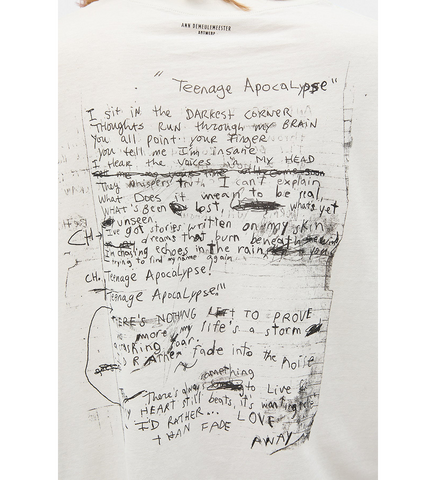 ANN DEMEULEMEESTER
ANTWERP
"Teenage Apocalypse"
I sit in the DARKEST CORNER
Thoughts RUN through my BRAIN
You all point your finger
you tell me I'm insane
I HEAR the VOICES in MY HEAD
They whispers truth I can't explain
What Does it mean to be real
WHAT'S BEEN lost, what's yet
unseen.
CH→ I've got stories written on my skin
dreams that burn beneath
I'm chasing echoes in the rain
trying to find my name again
CH. Teenage Apocalypse!
Teenage Apocalypse!"
THERE'S NOTHING LEFT TO PROVE
more my life's a storm
roar.
I'D RATHER fade into the noise
something
There's always to Live for
MY HEART still beats, it's wanting
I'D RATHER... LOVE
THAN FADE AWAY